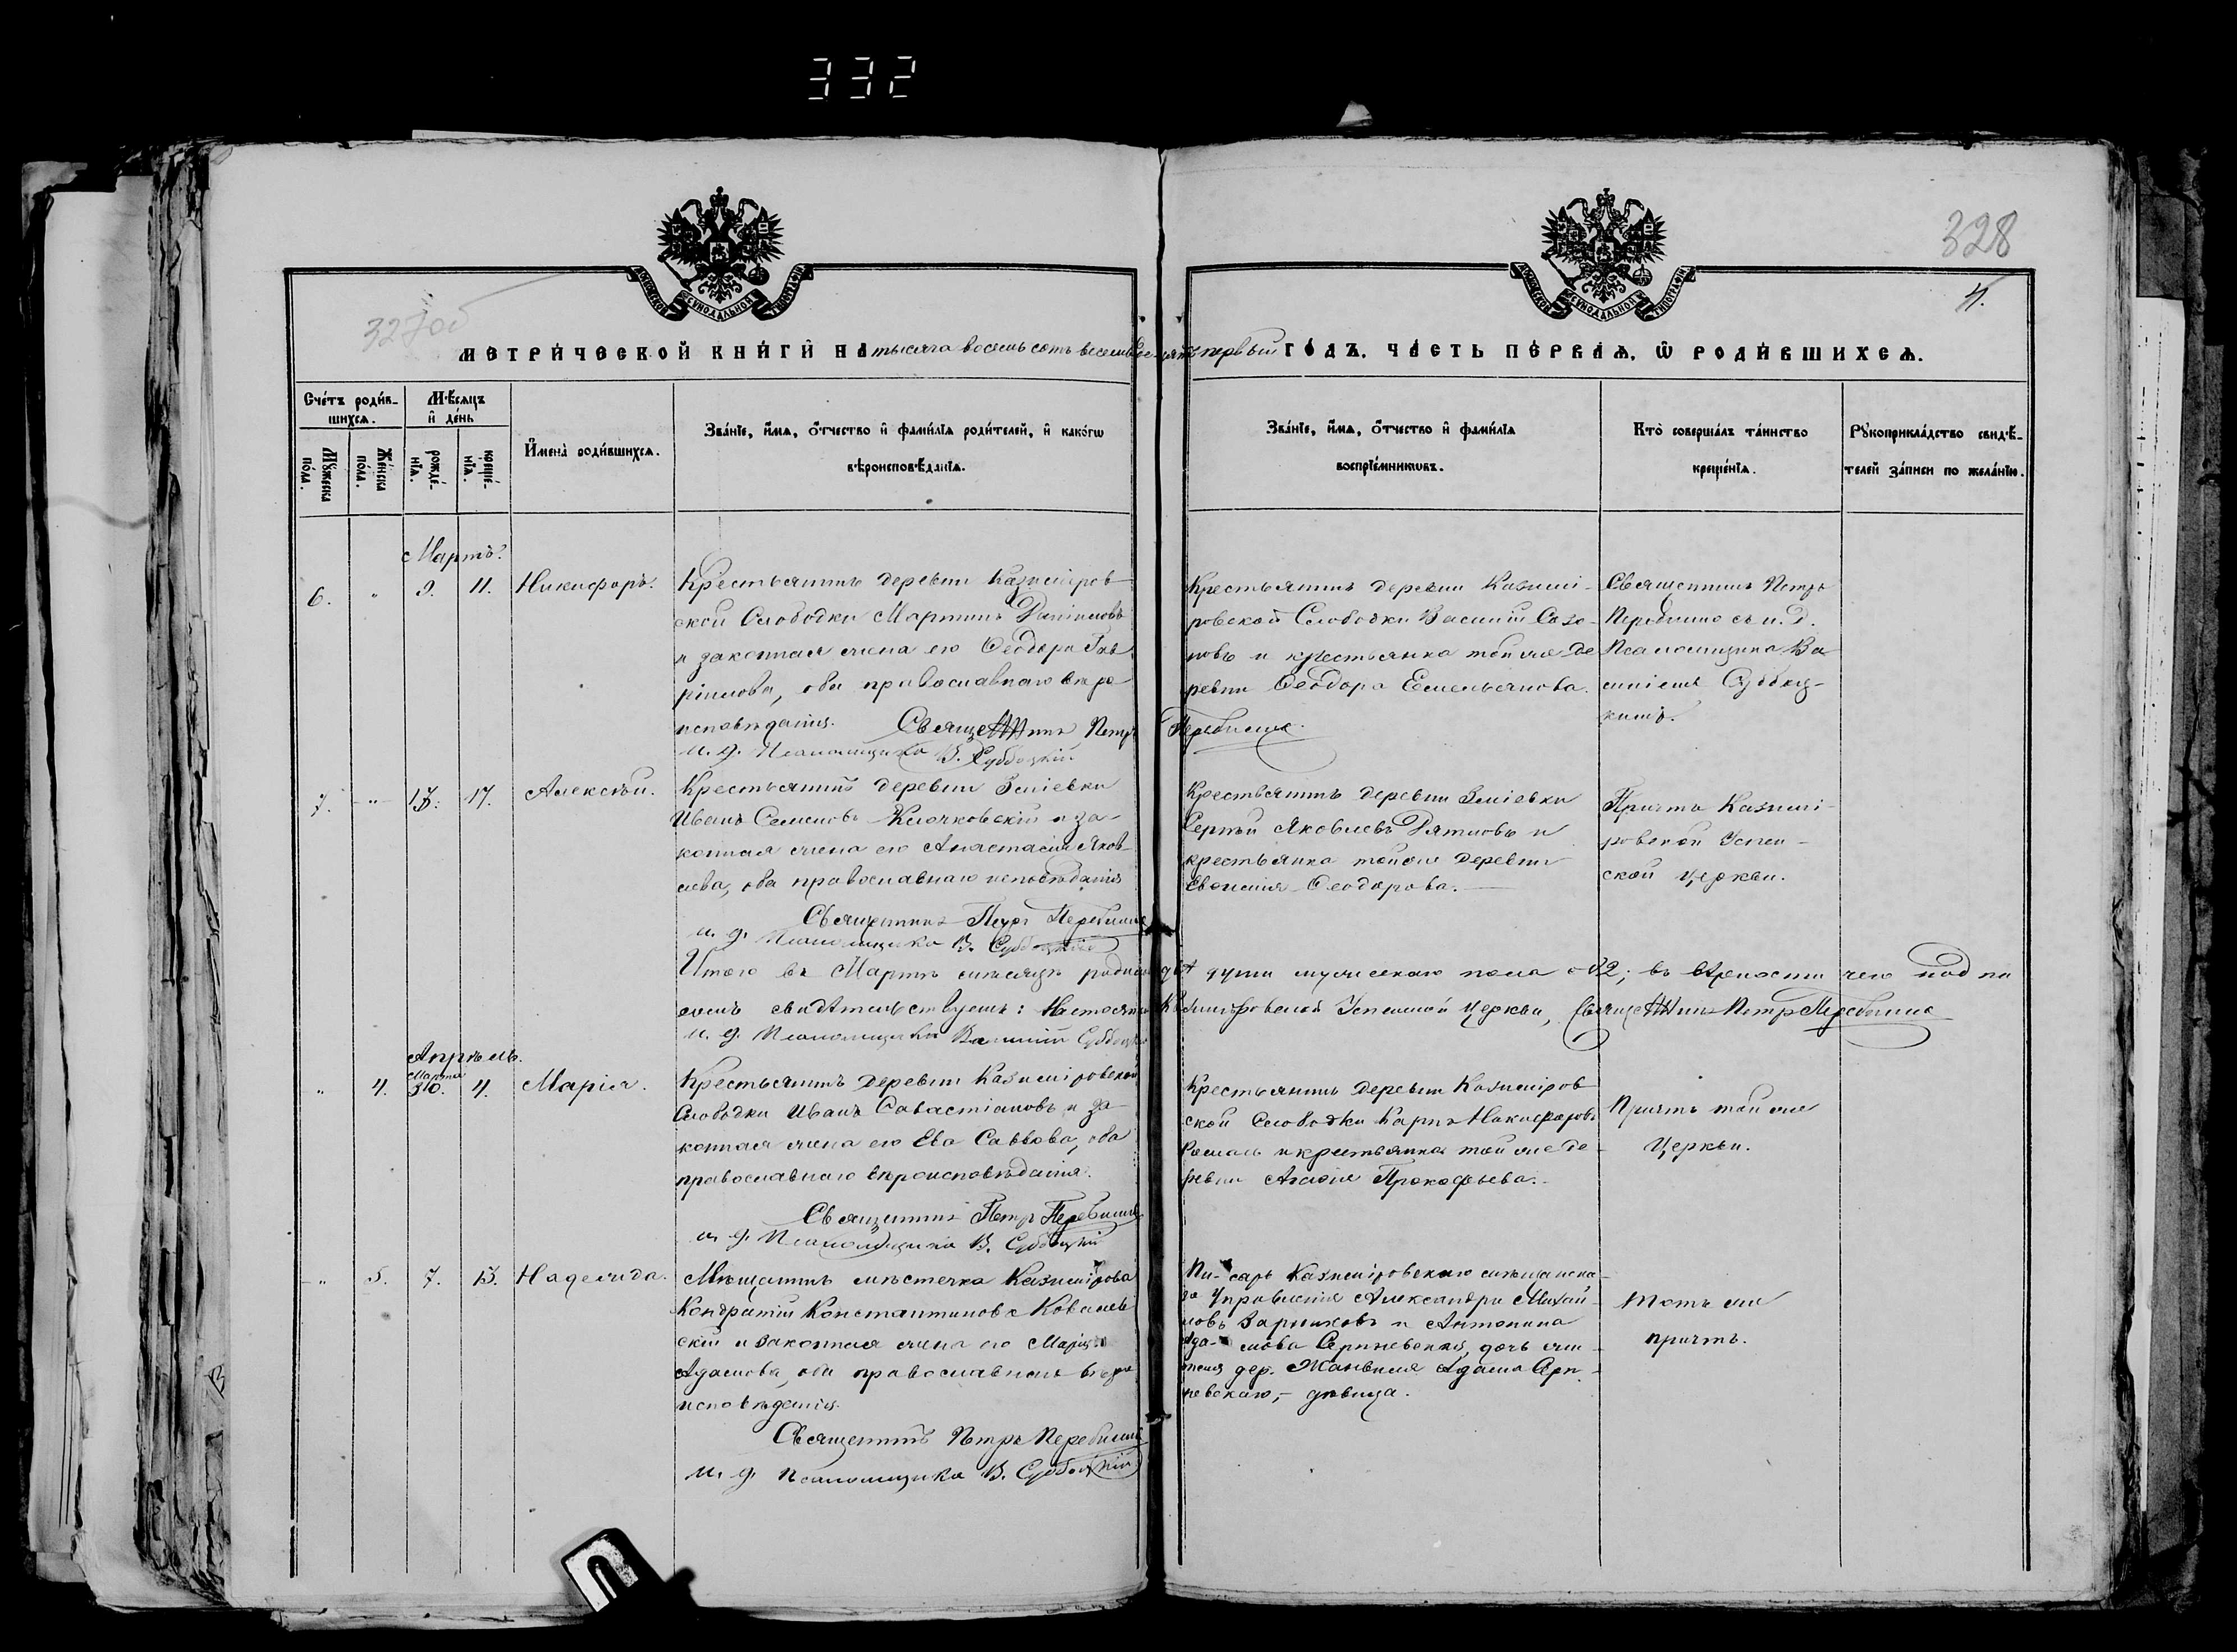 332
328
4.
327об
МЕТРИЧЕСКОЙ КНИГИ НА тысяча восемь сотъ восемьдесятъ первый ГОДЪ. ЧАСТЬ ПЕРВАЯ, Ѡ РОДИВШИХСЯ.
МОСКОВСКОЙ СѴНОДАЛЬНОЙ ТИПОГРАФІИ
МОСКОВСКОЙ СѴНОДАЛЬНОЙ ТИПОГРАФІИ
Счетъ родив-
шихся.
Мужеска
пола.
Женска
пола.
Мѣсяцъ
и день
рожде-
нія.
креще-
нія.
Имена родившихся.
Званіе, имя, отчество и фамилія родителей, и какогѡ
вѣроисповѣданія.
Званіе, имя, отчество и фамилія
воспріемниковъ.
Кто совершалъ таинство
крещенія.
Рукоприкладство свидѣ-
телей записи по желанію.
Мартъ.
6. " 9. 11. Никифоръ.
Крестьянинъ деревни Казимиров-
ской Слободки Мартинъ Даніиловъ
и законная жена его Феодора Гав
ріилова, оба православнаго вѣро
исповѣданія. Священникъ Петръ Перебилло
и. д. Псаломщика В. Суббоцкій.
Крестьянинъ деревни Казими-
ровской Слободки Василій Сазо-
новъ и крестьянка той же де
ревни Феодора Емельянова.
Священникъ Петръ
Перебилло съ и. д.
Псаломщика Ва
силіемъ Суббоц-
кимъ.
7. " 13. 17. Алексѣй.
Крестьянинъ деревни Зміевки
Иванъ Семеновъ Клочковскій и за-
конная жена его Анастасія Яков-
лева, оба православнаго исповѣданія
Священникъ Петръ Перебилло
и. д. Псаломщика В. Суббоцкій
Крестьянинъ деревни Зміевки
Сергѣй Яковлевъ Дятловъ и
крестьянка той же деревни
Евфимія Феодорова.
Причтъ Казими-
ровской Успен-
ской церкви.
Итого въ Мартѣ мѣсяцѣ родилось двѣ души мужескаго пола 2; въ вѣрности чего под пи
сомъ свидѣтельствуемъ: Настоятель Казимировской Успенской церкви, Священникъ Петръ Перебилло
и. д. Псаломщика Василій Суббоцкій
Апрѣль.
Марта
" 4. 30. 4. Марія.
Крестьянинъ деревни Казимировской
Слободки Иванъ Савастіановъ и за
конная жена его Ева Саввова, оба
православнаго вѣроисповѣданія.
Священникъ Петръ Перебилло
и. д. Псаломщика В. Суббоцкій
Крестьянинъ деревни Казимиров
ской Слободки Карпъ Никифоровъ
и крестьянка той же де-
ревни Агафія Прокофьева.
Причтъ той же
Церкви.
" 5. 7. 13. Надежда.
Мѣщанинъ мѣстечка Казимирова
Кондратій Константиновъ Ковалев
скій и законная жена его Марія
Адамова, оба православнаго вѣро
исповѣданія.
Священникъ Петръ Перебилло
и. д. Псаломщика В. Суббоцкій
Пи-сарь Казимировскаго мѣщанска-
го Управленія Александръ Михай-
ловъ и Антонина
Ада-мова дочь
дер. Адама
дѣвица.
Тотъ же
причтъ.